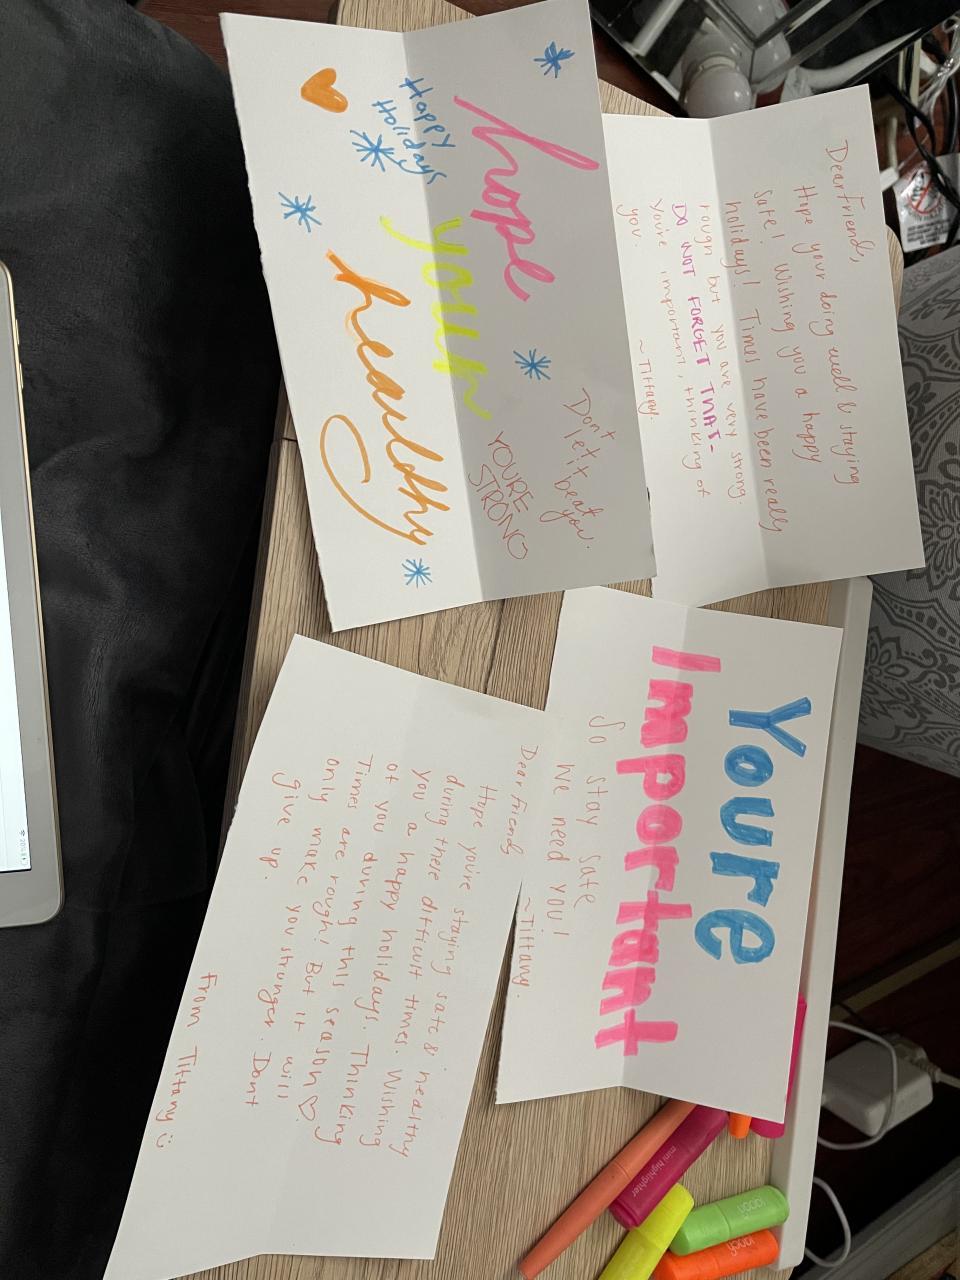 Dear Friend,
Hope your doing well & staying
safe! Wishing you a happy
holidays! Times have been really
rough but you are very strong.
DO NOT FORGET THAT-
you're important, thinking of
you.
~Tiffany.
hope
your
healthy
Happy
Holidays
Don't
let it beat
you.
YOURE
STRONG
Youre
Important
So stay safe
We need you!
~Tiffany.
Dear Friend,
Hope you're staying safe & healthy
during these difficult times. Wishing
you a happy holidays. Thinking
of you during this season ♡.
Times are rough! But it will
only make you stronger. Dont
give up.
From Tiffany :)
mini highlighter